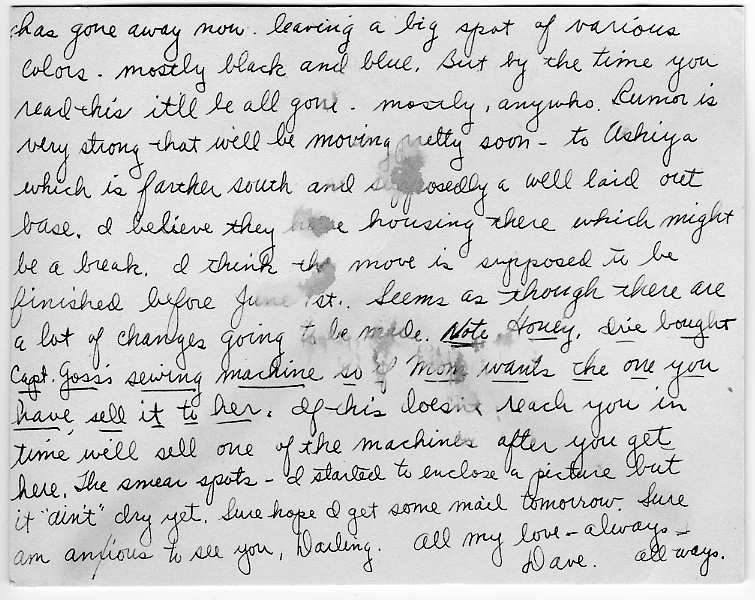 has gone away now. leaving a big spot of various
colors. mostly black and blue. But by the time you
read this it'll be all gone. mostly, anywho. Rumor is
very strong that we'll be moving pretty soon - to Ashiya
which is farther south and supposedly a well laid out
base. I believe they have housing there which might
be a break. I think the move is supposed to be
finished before June 1st.. Seems as though there are
a lot of changes going to be made. Note Honey, I've bought
Capt. Goss's sewing machine so if Mom wants the one you
have, sell it to her. If this doesn't reach you in
time we'll sell one of the machines after you get
here. The smear spots - I started to enclose a picture but
it "ain't" dry yet. Sure hope I get some mail tomorrow. Sure
am anxious to see you, Darling. All my love - always -
Dave. all ways.